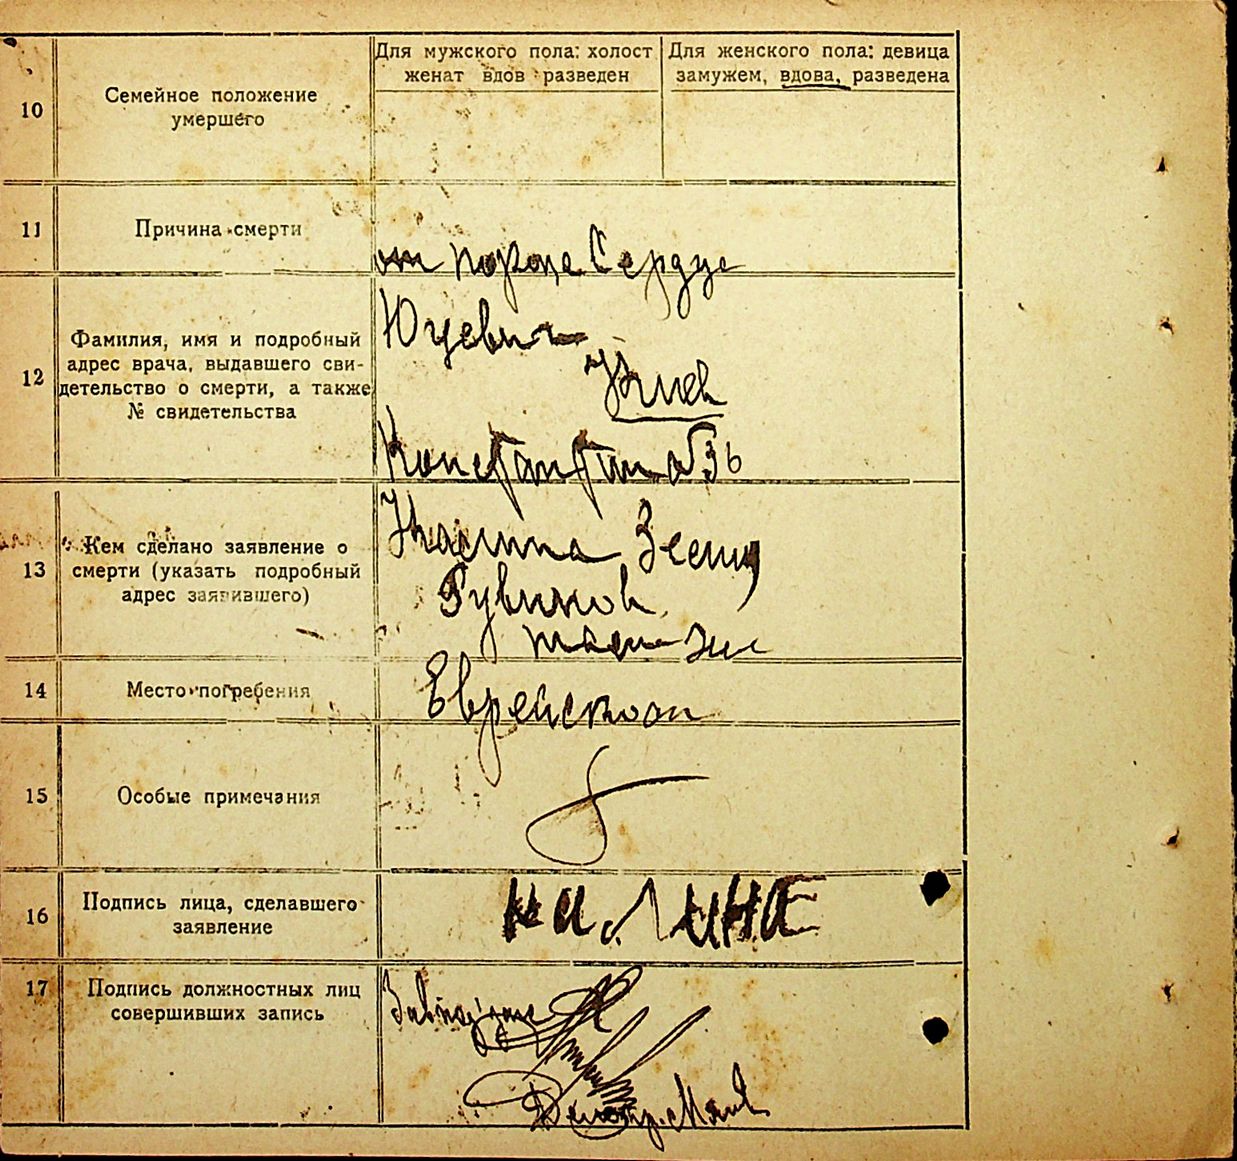 Для мужского пола: холост
женат вдов разведен
Для женского пола: девица
замужем, вдова, разведена
10
Семейное положение
умершего
11
Причина смерти
от порока Сердца
12
Фамилия, имя и подробный
адрес врача, выдавшего сви-
детельство о смерти, а также
№ свидетельства
Юцевич
Киев
13
Кем сделано заявление о
смерти (указать подробный
адрес заявившего)
Калина
14
Место погребения
Еврейском
15
Особые примечания
16
Подпись лица, сделавшего
заявление
калина
17
Подпись должностных лиц
совершивших запись